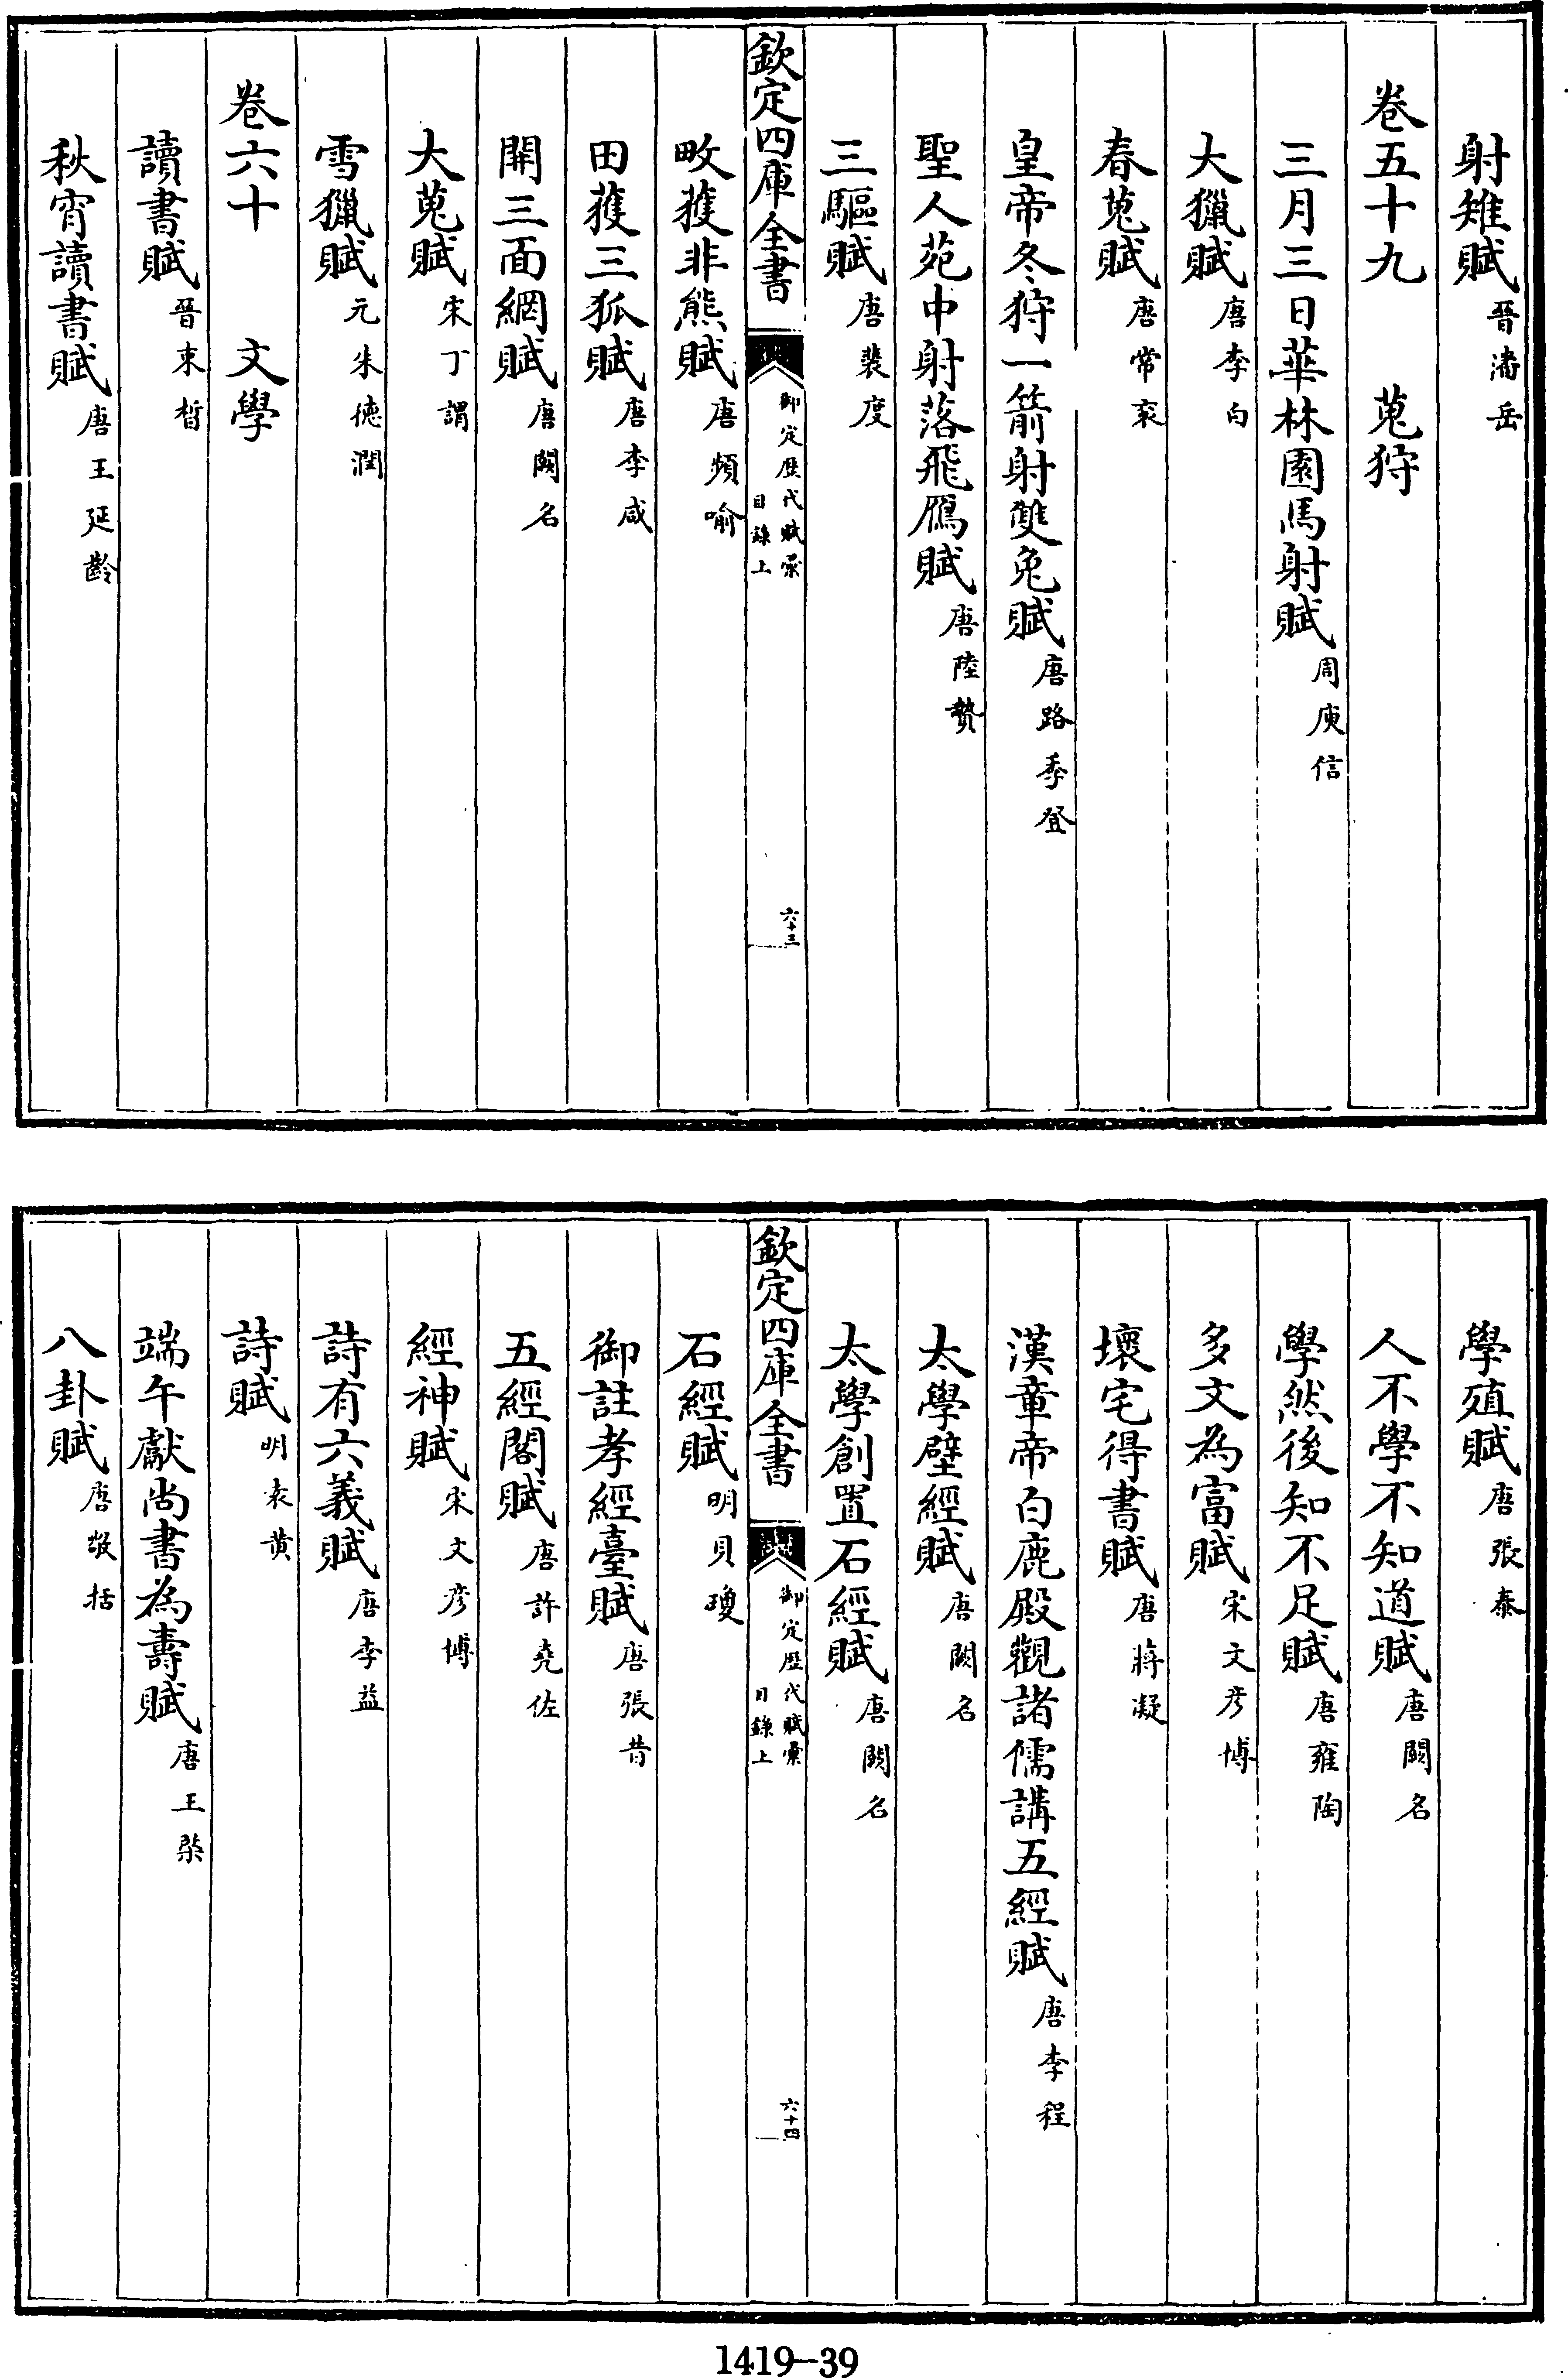 射雉賦晉潘岳
卷五十九 蒐狩
三月三日華林園馬射賦周庾信
大獵賦唐李白
春蒐賦唐常衮
皇帝冬狩一箭射雙兔賦唐路季登
聖人苑中射落飛鴈賦唐陸贄
三驅賦唐裴度
欽定四庫全書
御定歷代賦彙
目錄上
六十三
畋獲非熊賦唐頻喻
田獲三狐賦唐李咸
開三面網賦唐闕名
大蒐賦宋丁謂
雪獵賦元朱德潤
卷六十 文學
讀書賦晉束晳
秋宵讀書賦唐王延齡
學殖賦唐張泰
人不學不知道賦唐闕名
學然後知不足賦唐雍陶
多文為富賦宋文彥博
壞宅得書賦唐蔣凝
漢章帝白虎殿觀諸儒講五經賦唐李程
太學壁經賦唐闕名
太學創置石經賦唐闕名
欽定四庫全書
御定歷代賦彙
目錄上
六十四
石經賦明貝瓊
御註孝經臺賦唐張昔
五經閣賦唐許堯佐
經神賦宋文彥博
詩有六義賦唐李益
詩賦明袁黃
端午獻尚書為壽賦唐王棨
八卦賦唐敬括
1419-39